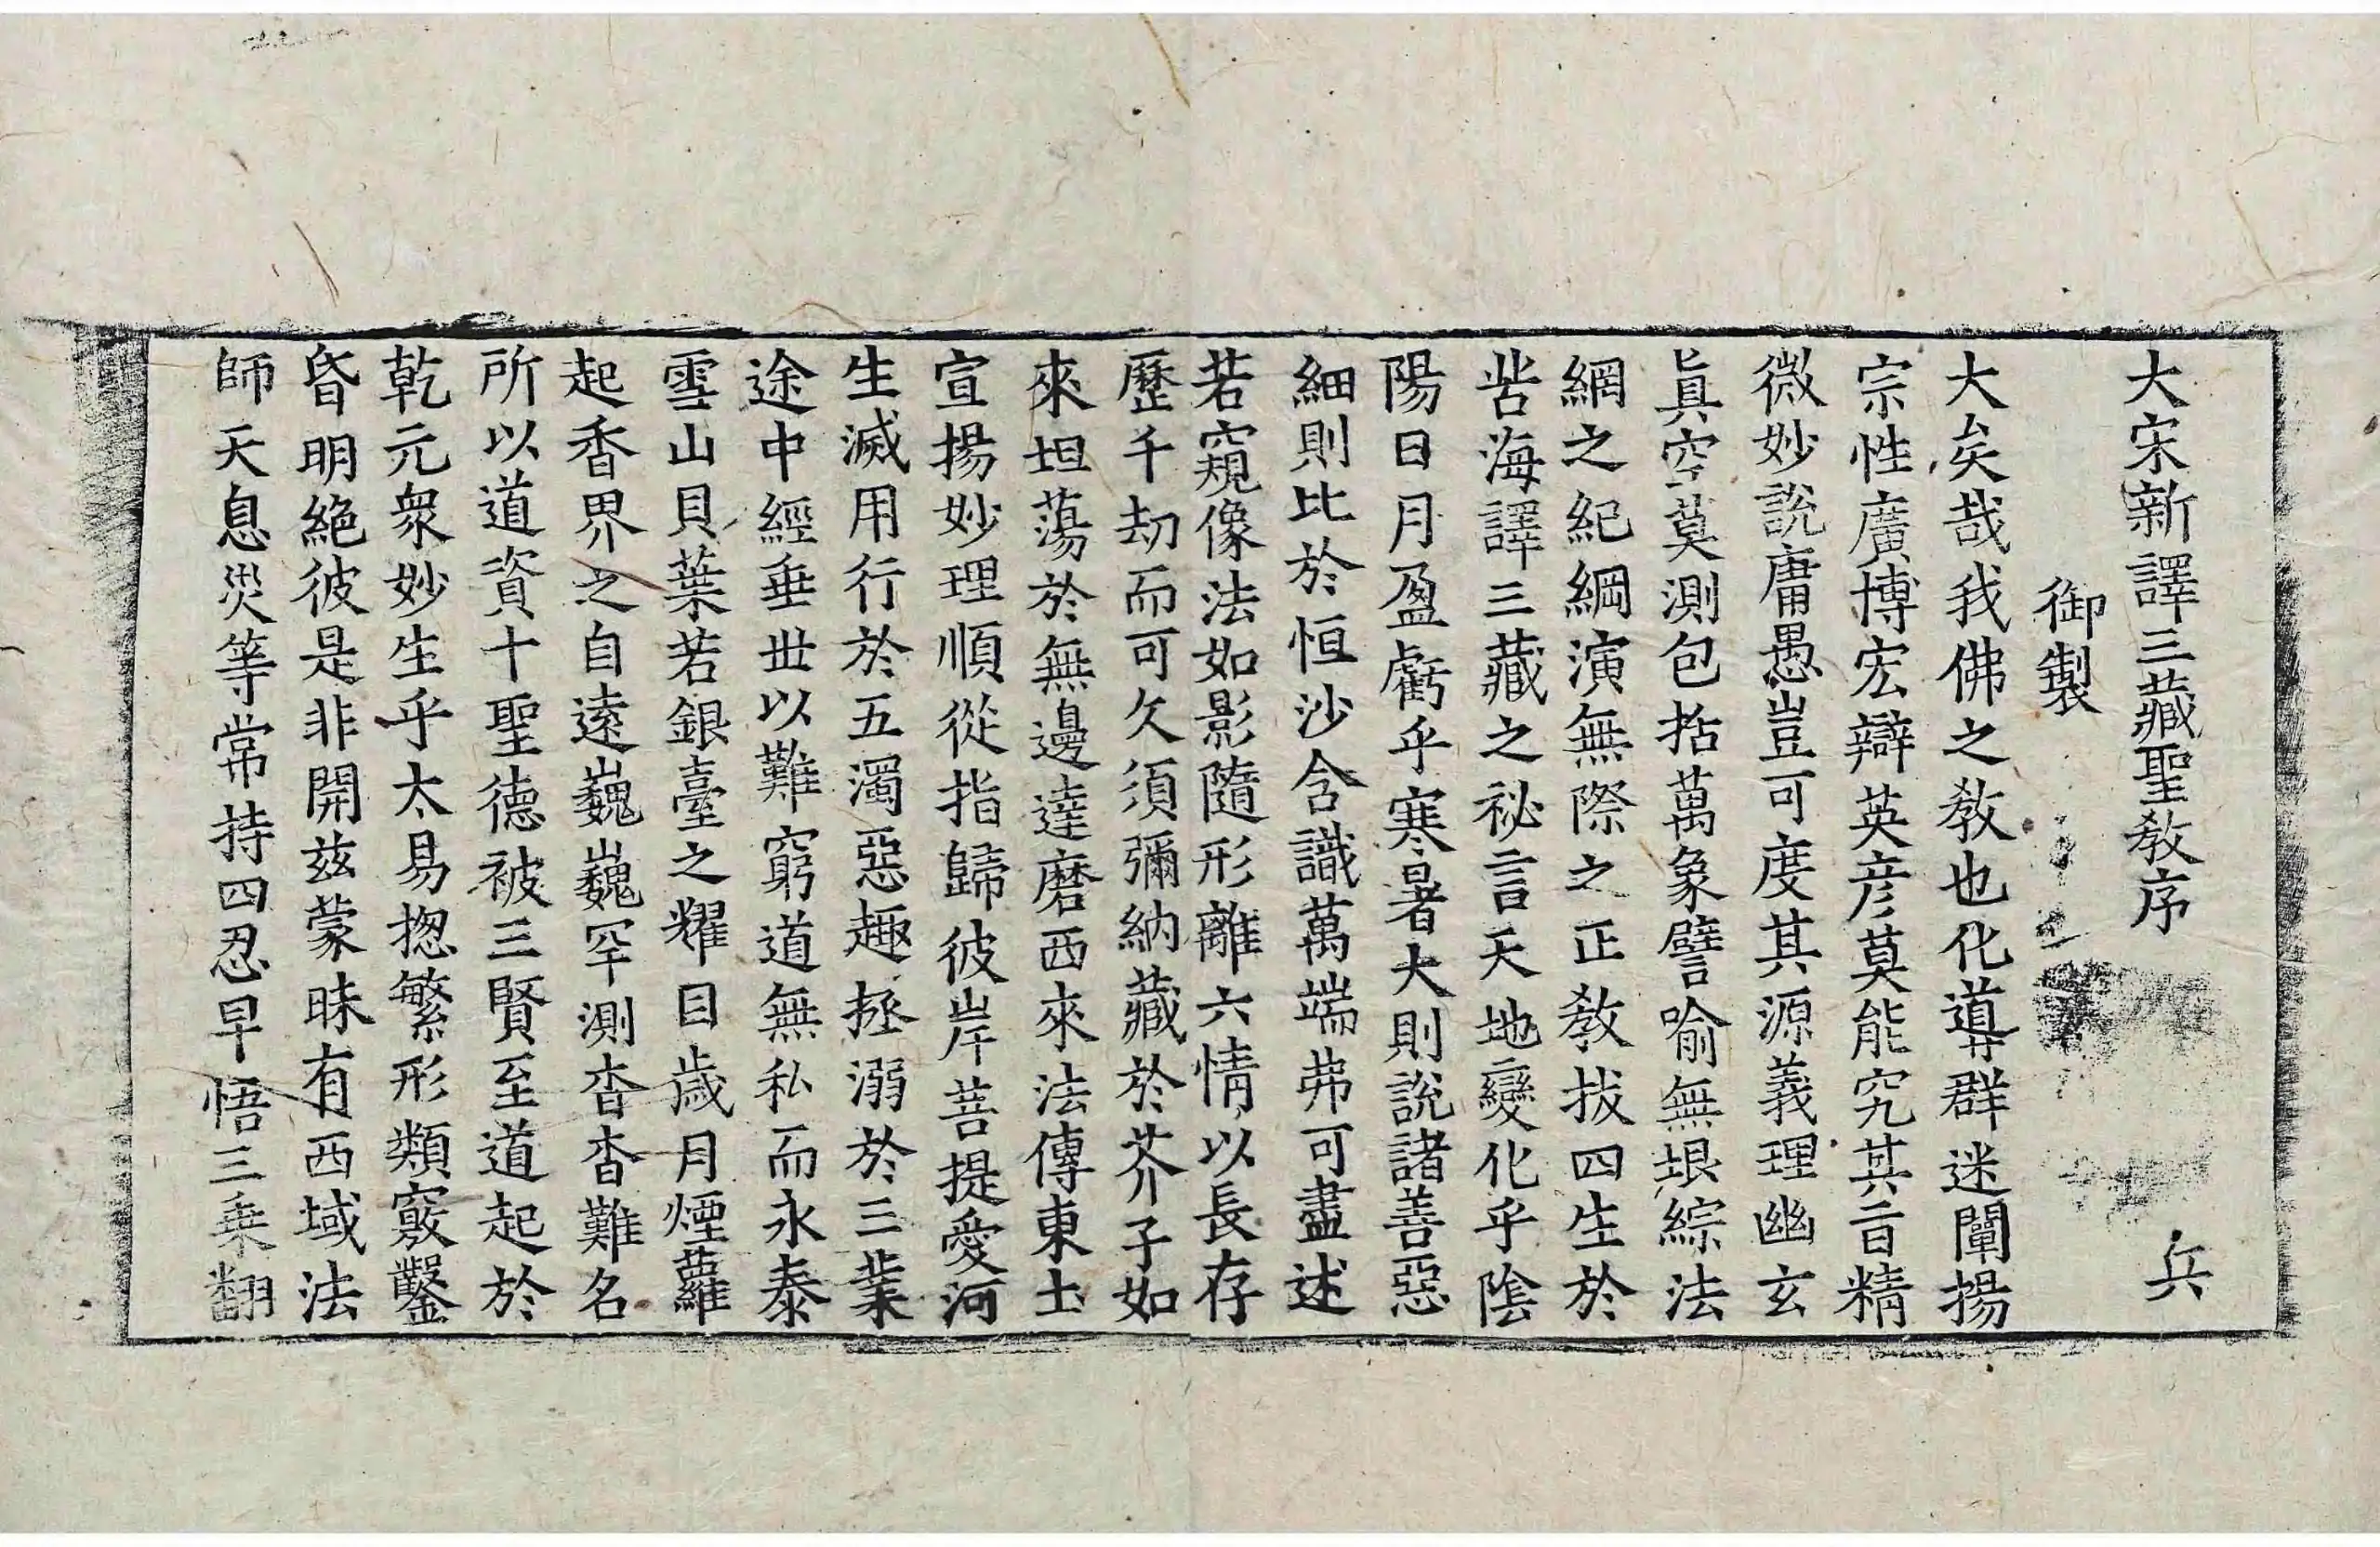 大宋新譯三藏聖教序　兵
御製
大矣哉我佛之教也化導群迷闡揚
宗性廣博宏辯英彦莫能究其旨精
微妙說庸愚豈可度其源義理幽玄
眞空莫測包括萬象譬喻無垠綜法
網之紀綱演無際之正教拔四生於
苦海譯三藏之祕言天地變化乎陰
陽日月盈虧乎寒暑大則說諸善惡
細則比於恒沙含識萬端弗可盡述
若窺像法如影隨形離六情以長存
歷千劫而可久須彌納藏於芥子如
來坦蕩於無邊達磨西來法傳東土
宣揚妙理順從指歸彼岸菩提愛河
生滅用行於五濁惡趣拯溺於三業
途中經垂世以難窮道無私而永泰
雪山貝葉若銀臺之耀目歲月煙蘿
起香界之自遠巍巍罕測杳杳難名
所以道資十聖德被三賢至道起於
乾元衆妙生乎太易揔繁形類竅鑿
昏明絶彼是非開兹蒙昧有西域法
師天息災等常持四忍早悟三乗翻